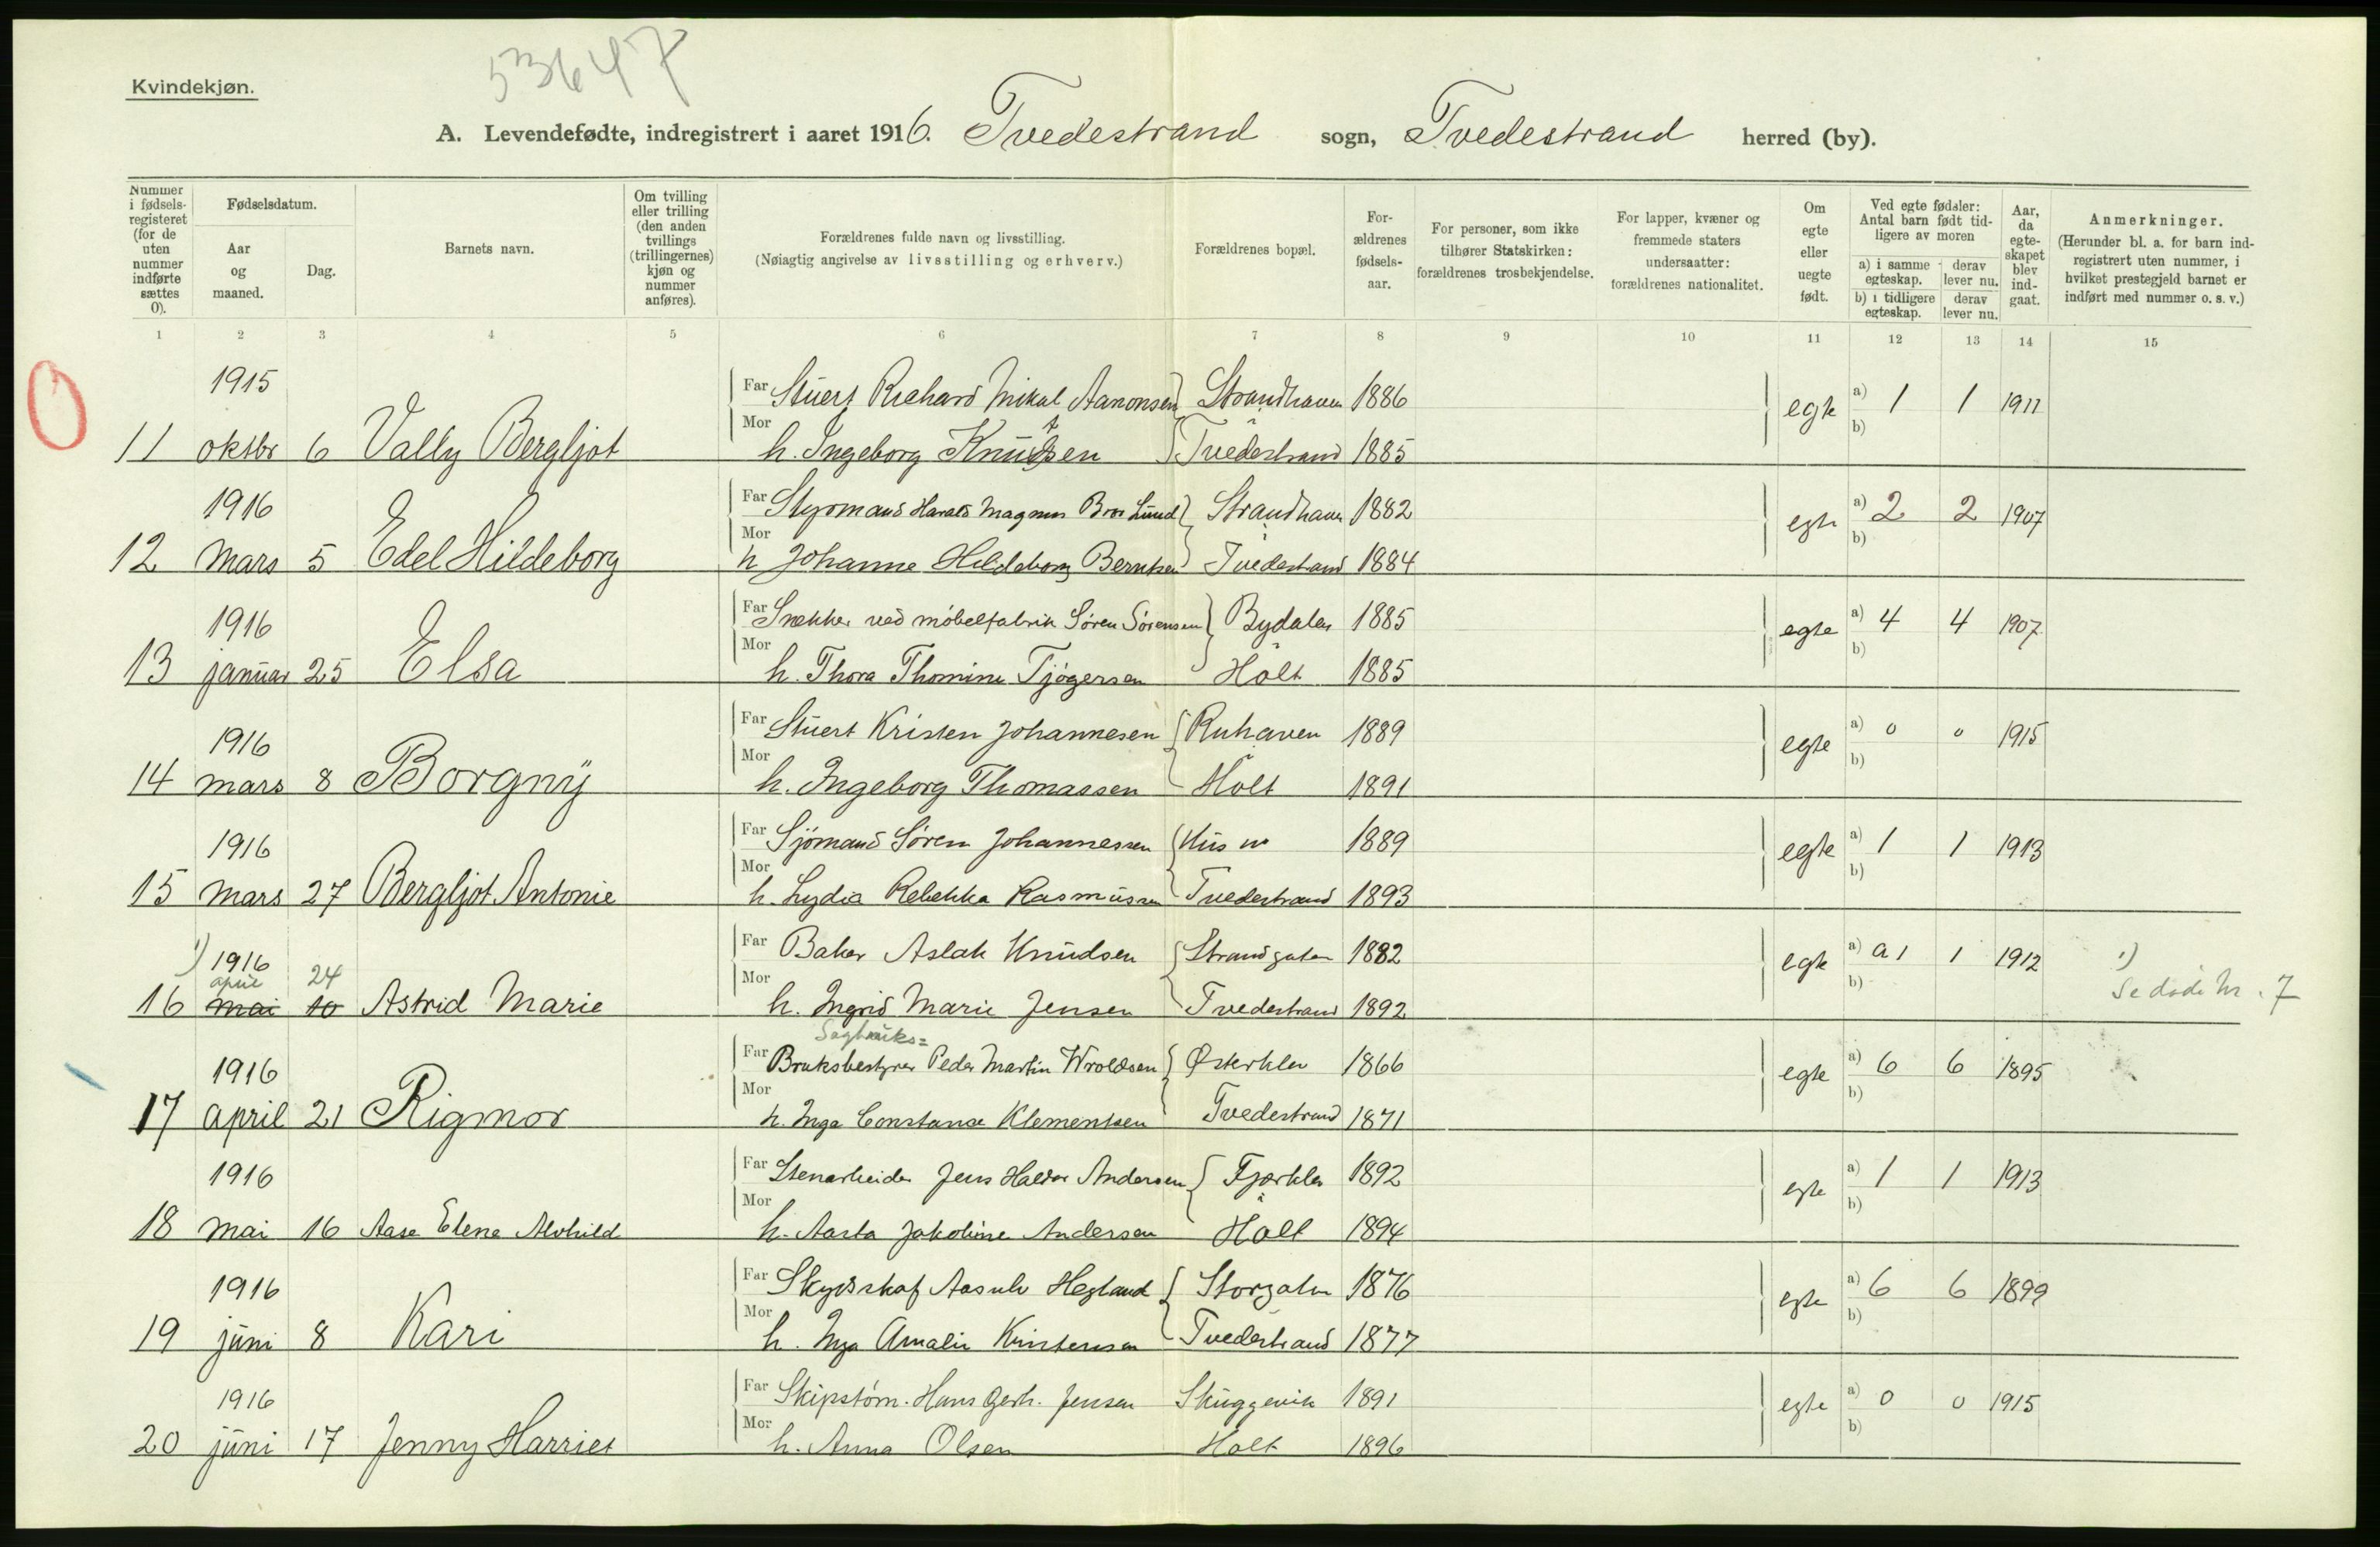 53647
Kvindekjøn.
A. Levendefødte, indregistrert i aaret 1916. Tvedestrand sogn, Tvedestrand herred (by).
Nummer i fødsels-registeret (for de uten nummer indførte sættes 0).
Fødselsdatum.
Aar og maaned.
Dag.
Barnets navn.
Om tvilling eller trilling (den anden tvillings (trillingernes) kjøn og nummer anføres).
Forældrenes fulde navn og livsstilling.
(Nøiagtig angivelse av livsstilling og erhverv.)
Forældrenes bopæl.
For-ældrenes fødsels-aar.
For personer, som ikke tilhører Statskirken: forældrenes trosbekjendelse.
For lapper, kvæner og fremmede staters undersaatter: forældrenes nationalitet.
Om egte eller uegte født.
Ved egte fødsler: Antal barn født tid-ligere av moren
a) i samme egteskap. derav lever nu.
b) i tidligere egteskap. derav lever nu.
Aar, da egte-skapet blev ind-gaat.
Anmerkninger.
(Herunder bl. a. for barn ind-registrert uten nummer, i hvilket prestegjeld barnet er indført med nummer o. s. v.)
1 2 3 4 5 6 7 8 9 10 11 12 13 14 15
0
1915 Far Stuert Richard Mikal Aanonsen Strandhaven 1886 egte a) 1 1 1911
11 oktbr 6 Vally Bergljot Mor h. Ingeborg Knutsen Tvedestrand 1885 b)
1916 Far Styrmand Harald Magnus Bror Lund Strandhaven 1882 egte a) 2 2 1907
12 mars 5 Edel Hildeborg Mor h Johanne Hildeborg Berntsen Tvedestrand 1884 b)
1916 Far Snekker ved møbelfabrik Søren Sørensen Bydalen 1885 egte a) 4 4 1907
13 januar 25 Elsa Mor h. Thora Thomine Tjøgersen Holt 1885 b)
1916 Far Stuert Kristen Johannesen Ruhaven 1889 egte a) 0 0 1915
14 mars 8 Borgny Mor h. Ingeborg Thomassen Holt 1891 b)
1916 Far Sjömand Søren Johannessen Hus no 1889 egte a) 1 1 1913
15 mars 27 Bergljot Antonie Mor h. Lydia Rebekka Rasmussen Tvedestrand 1893 b)
1) 1916 Far Baker Aslak Knudsen Strandgaten 1882 egte a) a 1 1 1912 1)
april 24
16 mai 10 Astrid Marie Mor h. Ingrid Marie Jensen Tvedestrand 1892 b) Se døde nr. 7
Sagbruks=
1916 Far Bruksbestyrer Peder Martin Wroldsen Østerklev 1866 egte a) 6 6 1895
17 april 21 Rigmor Mor h. Inga Constanse Klementsen Tvedestrand 1871 b)
1916 Far Stenarbeider Jens Haldor Andersen Fjærklev 1892 egte a) 1 1 1913
18 mai 16 Aase Elene Alvhild Mor h. Aasta Jakobine Andersen Holt 1894 b)
1916 Far Skydsskaf Aasulv Hegland Storgaten 1876 egte a) 6 6 1899
19 juni 8 Kari Mor h. Inga Amalie Kristensen Tvedestrand 1877 b)
1916 Far Skipstøm. Hans Gerh. Jensen Skuggevik 1891 egte a) 0 0 1915
20 juni 17 Jenny Harriet Mor h. Anna Olsen Holt 1896 b)